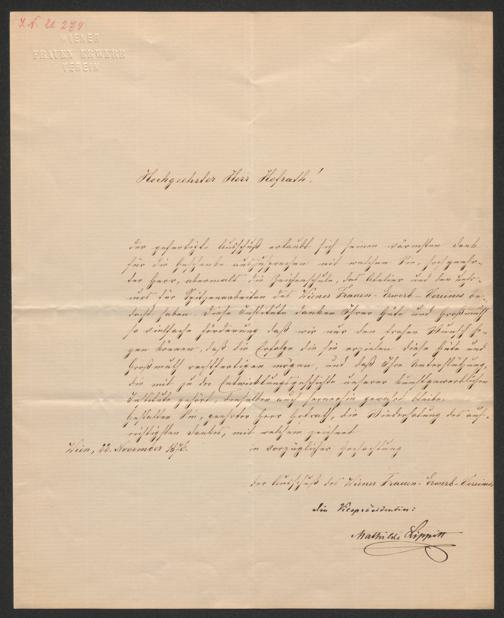 WIENER
FRAUEN ERWERB
VEREIN
Hochgeehrter Herr Hofrath!
Der gefertigte Ausschuß erlaubt sich seinen wärmsten Dank
für die auszusprechen mit welchen Sie, hochgeehr-
ter Herr, abermals die Zeichenschule, das Atelier und den Lehr-
kurs für Spitzenarbeiten des Wiener Frauen-Erwerb-Vereines be-
dacht haben. Diese Institute danken Ihrer Güte und Großmuth
so vielfache Förderung daß wir nur den frohen Wunsch he-
gen können, daß die Erfolge die sie erzielen diese Güte und
Großmuth rechtfertigen mögen, und daß Ihre Unterstützung,
die mit zu der Entwicklungsgeschichte unserer kunstgewerblichen
Institute gehört, denselben auch fernerhin gewahrt bleibe.
Gestatten Sie, geehrter Herr Hofrath, die Wiederholung des auf-
richtigsten Dankes, mit welchem zeichnet
Wien, 22. November 1876. in vorzüglicher Hochachtung
der Ausschuß des Wiener Frauen-Erwerb-Vereines
Die Vicepräsidentin:
Mathilde Lippitt